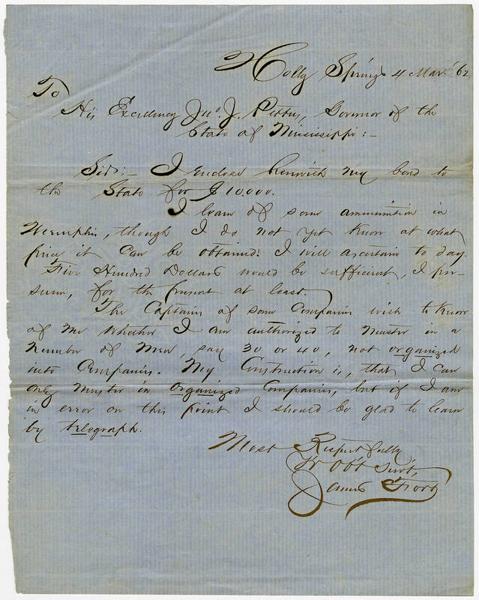 Holly Springs 4 Mar. '62
To
His Excellency Jno. J. Pettus, Governor of the
State of Mississippi:-
Sir:- I enclose herewith my bond to
the State for $10,000.
I learn of some ammunition in
Memphis, though I do not yet know at what
price it can be obtained. I will ascertain to day
Five Hundred Dollars would be sufficient, I pre-
sume, for the present at least.
The Captains of some Companies wish to know
of me whether I am authorized to Muster in a
Number of Men say 30 or 40, not organized
into Companies. My Construction is, that I can
only muster in Organized Companies, but if I am
in error on this point I should be glad to learn
by telegraph.
Most Respectfully
Yr Obt Servt,
James